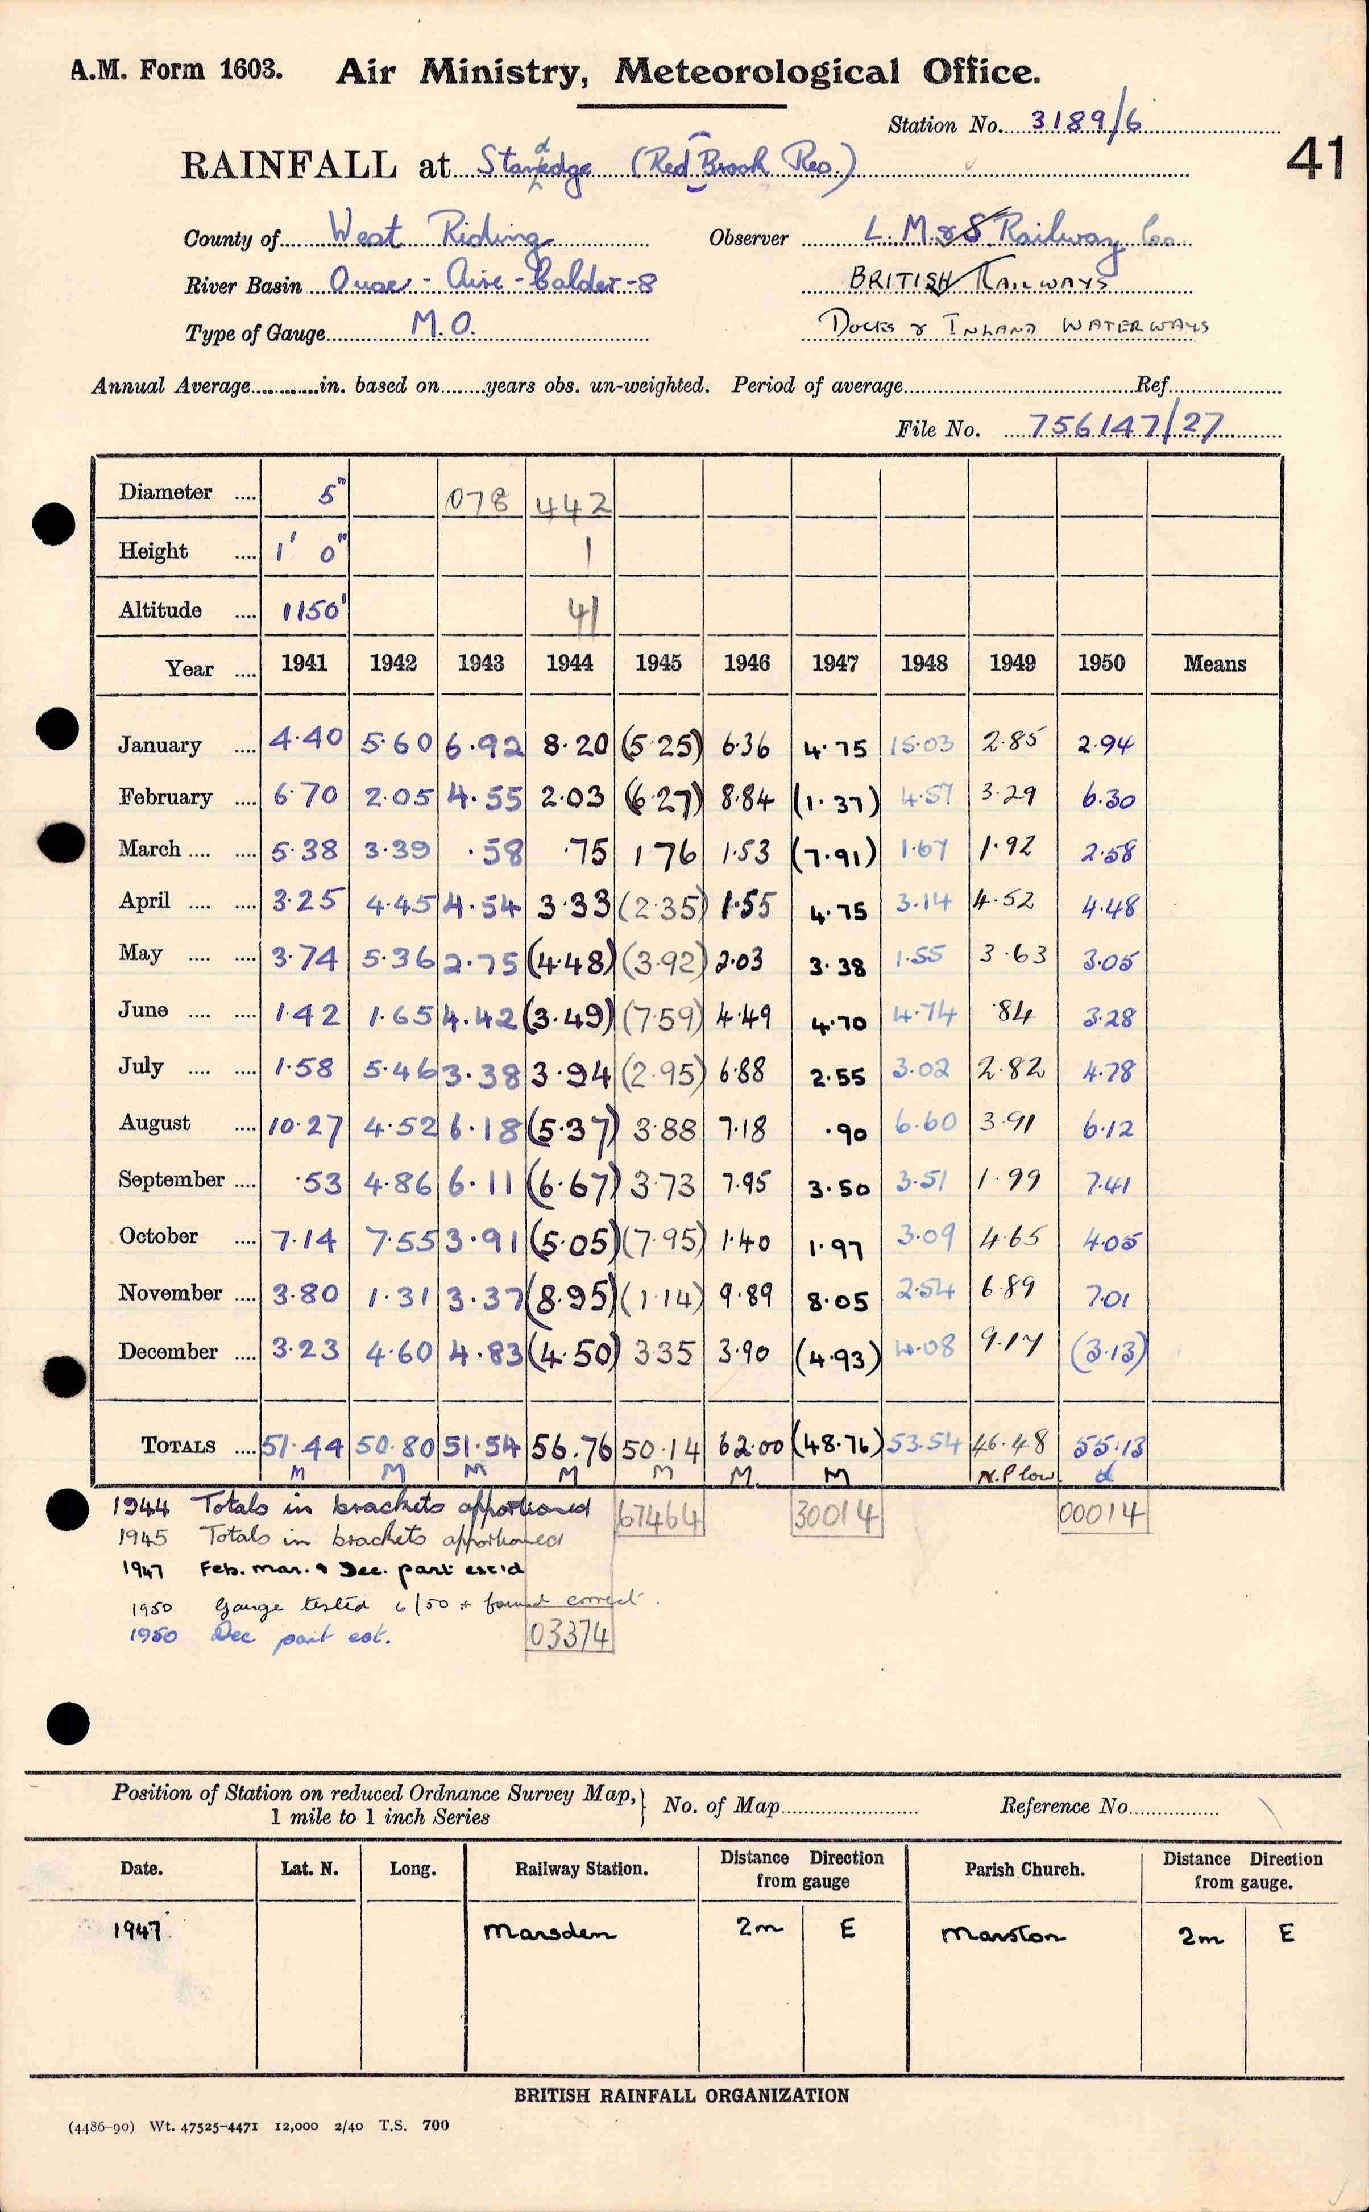 A.M. Form 1603. Air Ministry, Meteorological Office.
Station No. 3189/6
41
RAINFALL at Standedge (Red Brook Res.)
County of West Riding Observer L.M. & S. Railway Co.
River Basin Ouse - Aire - Calder - 8 BRITISH RAILWAYS
Type of Gauge M.O. DOCKS & INLAND WATERWAYS
Annual Average in. based on years obs. un-weighted. Period of average Ref
File No. 756147/27
Diameter .... 5" 078 442
Height .... 1' 0" 1
Altitude .... 1150' 41
Year .... 1941 1942 1943 1944 1945 1946 1947 1948 1949 1950 Means
January .... 4.40 5.60 6.92 8.20 (5.25) 6.36 4.75 15.03 2.85 2.94
February .... 6.70 2.05 4.55 2.03 (6.27) 8.84 (1.37) 4.57 3.29 6.30
March .... .... 5.38 3.39 .58 .75 1 76 1.53 (7.91) 1.67 1.92 2.58
April .... .... 3.25 4.45 4.54 3.33 (2.35) 1.55 4.75 3.14 4.52 4.48
May .... .... 3.74 5.36 2.75 (4.48) (3.92) 2.03 3.38 1.55 3.63 3.05
June .... .... 1.42 1.65 4.42 (3.49) (7.59) 4.49 4.70 4.74 .84 3.28
July .... .... 1.58 5.46 3.38 3.94 (2.95) 6.88 2.55 3.02 2.82 4.78
August .... 10.27 4.52 6.18 (5.37) 3.88 7.18 .90 6.60 3.91 6.12
September .... .53 4.86 6.11 (6.67) 3.73 7.95 3.50 3.51 1.99 7.41
October .... 7.14 7.55 3.91 (5.05) (7.95) 1.40 1.97 3.09 4.65 4.05
November .... 3.80 1.31 3.37 (8.95) (1.14) 9.89 8.05 2.54 6.89 7.01
December .... 3.23 4.60 4.83 (4.50) 3.35 3.90 (4.93) 4.08 9.17 (3.13)
TOTALS .... 51.44 50.80 51.54 56.76 50.14 62.00 (48.76) 53.54 46.48 55.13
M M M M M M M N.P low. d
1944 Totals in brackets apportioned 67464 30014 00014
1945 Totals in brackets apportioned
1947 Feb. Mar. & Dec. part est'd
1950 Gauge tested 6/50 & found correct.
1950 Dec part est. 03374
Position of Station on reduced Ordnance Survey Map, } No. of Map Reference No.
1 mile to 1 inch Series
Date. Lat. N. Long. Railway Station. Distance Direction from gauge Parish Church. Distance Direction from gauge.
1947 Marsden 2m E Marston 2m E
BRITISH RAINFALL ORGANIZATION
(4486-90) Wt. 47525-4471 12,000 2/40 T.S. 700